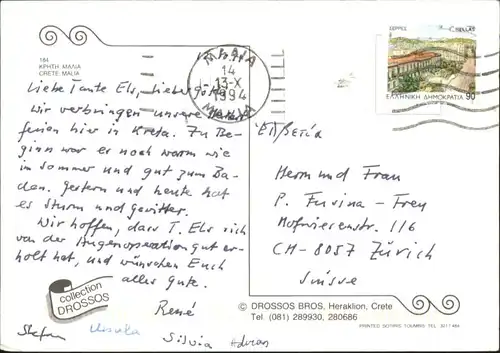 184
ΚΡΗΤΗ ΜΑΛΙΑ
CRETE MALIA
Liebe Tante Els, lieber
Wir verbringen unsere
ferien hier in Kreta. Zu Be-
ginn war es noch warm wie
im Sommer und gut zum Ba-
den. Gestern und heute hat
es Sturm und Gewitter.
Wir hoffen, dass T. Els sich
von der Augenoperation gut er-
holt hat, und wünschen Euch
alles Gute.
René
Stefan Ursula Silvia Adrian
collection
DROSSOS
ΜΑΛΙΑ
14
13-X
1994
MALIA
ΣΕΡΡΕΣ
ΕΛΛΗΝΙΚΗ ΔΗΜΟΚΡΑΤΙΑ 90
Ελβετία
Herrn und Frau
P. Furina-Frey
Hofwiesenstr. 116
CH-8057 Zürich
Suisse
© DROSSOS BROS, Heraklion, Crete
Tel (081) 289930, 280686
PRINTED SOTIRIS TOUMBIS TEL.